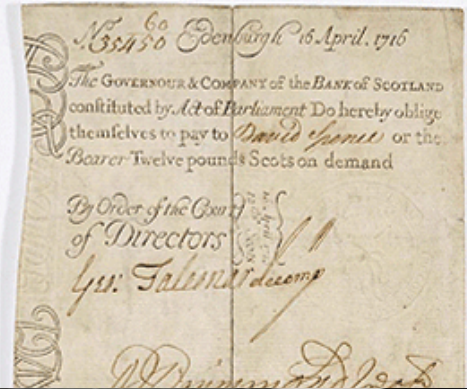 60
No. 35450 Edenburgh 16 April. 1716
The GOVERNOUR & COMPANY of the BANK of SCOTLAND
constituted by Act of Parliament Do hereby oblige
themselves to pay to David Spence or the
Bearer Twelve pounds Scots on demand
By Order of the Court
of Directors